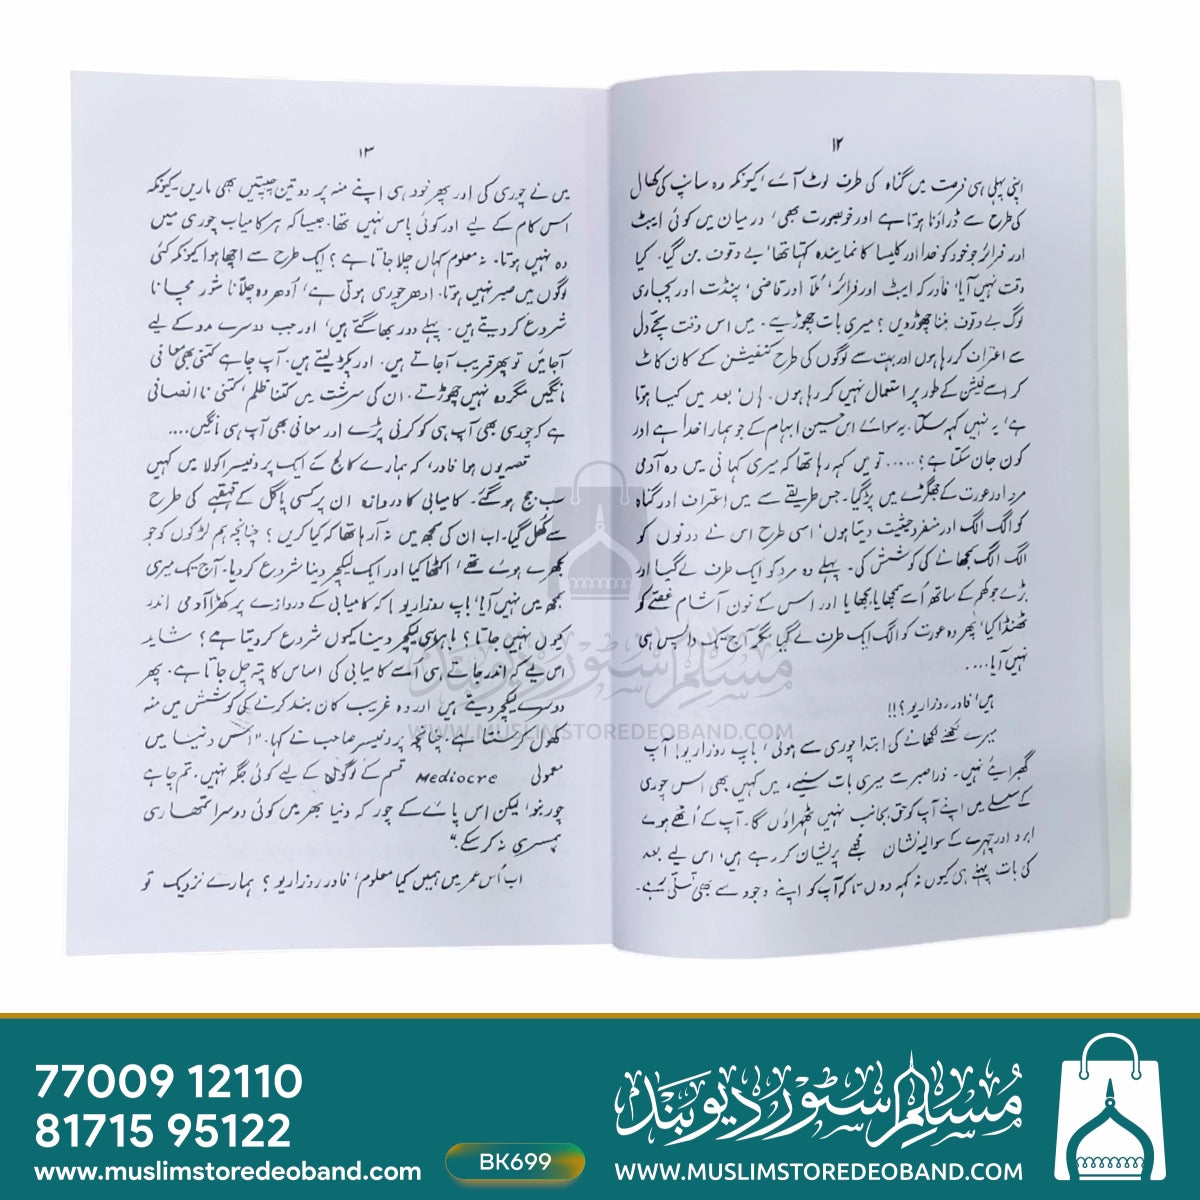 ۱۲
اپنی پہلی ہی فرصت میں گناہ کی طرف لوٹ آئے، کیونکہ وہ سانپ کی کھال
کی طرح سے ڈراؤنا ہوتا ہے اور خوبصورت بھی، درمیان میں کوئی ایبٹ
اور فرائر جو خود کو خدا اور کلیسا کا نمائندہ کہتا تھا، بے وقوف بن گیا۔ کیا
وقت نہیں آیا، فادر کہ ایبٹ اور فرائر، مُلّا اور قاضی، پنڈت اور پجاری
لوگ بے وقوف بننا چھوڑ دیں؟ میری بات چھوڑیے۔ میں اس وقت سچے دل
سے اعتراف کر رہا ہوں اور بہت سے لوگوں کی طرح کنفیشن کے کان کاٹ
کر اسے فیشن کے طور پر استعمال نہیں کر رہا ہوں۔ ہاں، بعد میں کیا ہوتا
ہے، یہ نہیں کہہ سکتا۔ یہ سوائے اس حسین ابہام کے جو ہمارا خدا ہے اور
کون جان سکتا ہے؟..... تو میں کہہ رہا تھا کہ میری کہانی میں وہ آدمی
مرد اور عورت کے جھگڑے میں پڑ گیا۔ جس طریقے سے میں اعتراف اور گناہ
کو الگ الگ اور منفرد حیثیت دیتا ہوں، اسی طرح اس نے دونوں کو
الگ الگ سمجھانے کی کوشش کی۔ پہلے وہ مرد کو ایک طرف لے گیا اور
بڑے جوکھم کے ساتھ اُسے سمجھایا بجھایا اور اس کے خون آشام غصے کو
ٹھنڈا کیا، پھر وہ عورت کو الگ ایک طرف لے گیا مگر آج تک واپس ہی
نہیں آیا....
ہیں، فادر روزاریو؟!!
میرے لکھنے لکھانے کی ابتدا چوری سے ہوئی، باپ روزاریو! آپ
گھبرائیے نہیں۔ ذرا صبر سے میری بات سنیے، میں کہیں بھی اس چوری
کے سلسلے میں اپنے آپ کو حق بجانب نہیں ٹھہراؤں گا۔ آپ کے اُٹھے ہوئے
ابرو اور چہرے کے سوالیہ نشان مجھے پریشان کر رہے ہیں، اس لیے بعد
کی بات پہلے ہی کیوں نہ کہہ دوں تاکہ آپ کو اپنے وجود سے بھی تسلّی رہے۔
۱۳
میں نے چوری کی اور پھر خود ہی اپنے منہ پر دو تین چپتیں بھی ماریں۔ کیونکہ
اس کام کے لیے اور کوئی پاس نہیں تھا۔ جیسا کہ ہر کامیاب چوری میں
وہ نہیں ہوتا۔ نہ معلوم کہاں چلا جاتا ہے؟ ایک طرح سے اچھا ہوا کیونکہ کئی
لوگوں میں صبر نہیں ہوتا۔ ادھر چوری ہوتی ہے، اُدھر وہ چلّانا شور مچانا
شروع کر دیتے ہیں۔ پہلے دور بھاگتے ہیں، اور جب دوسرے مدد کے لیے
آجائیں تو پھر قریب آجاتے ہیں۔ اور پکڑ لیتے ہیں۔ آپ چاہے کتنی بھی معافی
مانگیں مگر وہ نہیں چھوڑتے۔ ان کی سرشت میں کتنا ظلم، کتنی ناانصافی
ہے کہ چوری بھی آپ ہی کو کرنی پڑے اور معافی بھی آپ ہی مانگیں....
قصہ یوں ہوا فادر، کہ ہمارے کالج کے ایک پروفیسر اکولا میں کہیں
سب جج ہو گئے۔ کامیابی کا دروازہ ان پر کسی پاگل کے قہقہے کی طرح
سے کُھل گیا۔ اب ان کی سمجھ میں نہ آ رہا تھا کہ کیا کریں؟ چنانچہ ہم لڑکوں کو جو
بکھرے ہوئے تھے، اکٹھا کیا اور ایک لیکچر دینا شروع کر دیا۔ آج تک میری
سمجھ میں نہیں آیا، باپ روزاریو! کہ کامیابی کے دروازے پر کھڑا آدمی اندر
کیوں نہیں جاتا؟ باہر ہی لیکچر دینا کیوں شروع کر دیتا ہے؟ شاید
اس لیے کہ اندر جاتے ہی اُسے کامیابی کی اساس کا پتہ چل جاتا ہے۔ پھر
دوسرے لیکچر دیتے ہیں اور وہ غریب کان بند کرنے کی کوشش میں منہ
کھول کر سنتا ہے۔ چنانچہ پروفیسر صاحب نے کہا۔ "اس دنیا میں
معمولی Mediocre قسم کے لوگوں کے لیے کوئی جگہ نہیں۔ تم چاہے
چور بنو، لیکن اس پائے کے چور کہ دنیا بھر میں کوئی دوسرا تمھاری
ہمسری نہ کر سکے۔"
اب اُس عمر میں ہمیں کیا معلوم، فادر روزاریو؟ ہمارے نزدیک تو
مسلم سٹور دیوبند
WWW.MUSLIMSTOREDEOBAND.COM
77009 12110
81715 95122
www.muslimstoredeoband.com
BK699
مسلم سٹور دیوبند
WWW.MUSLIMSTOREDEOBAND.COM